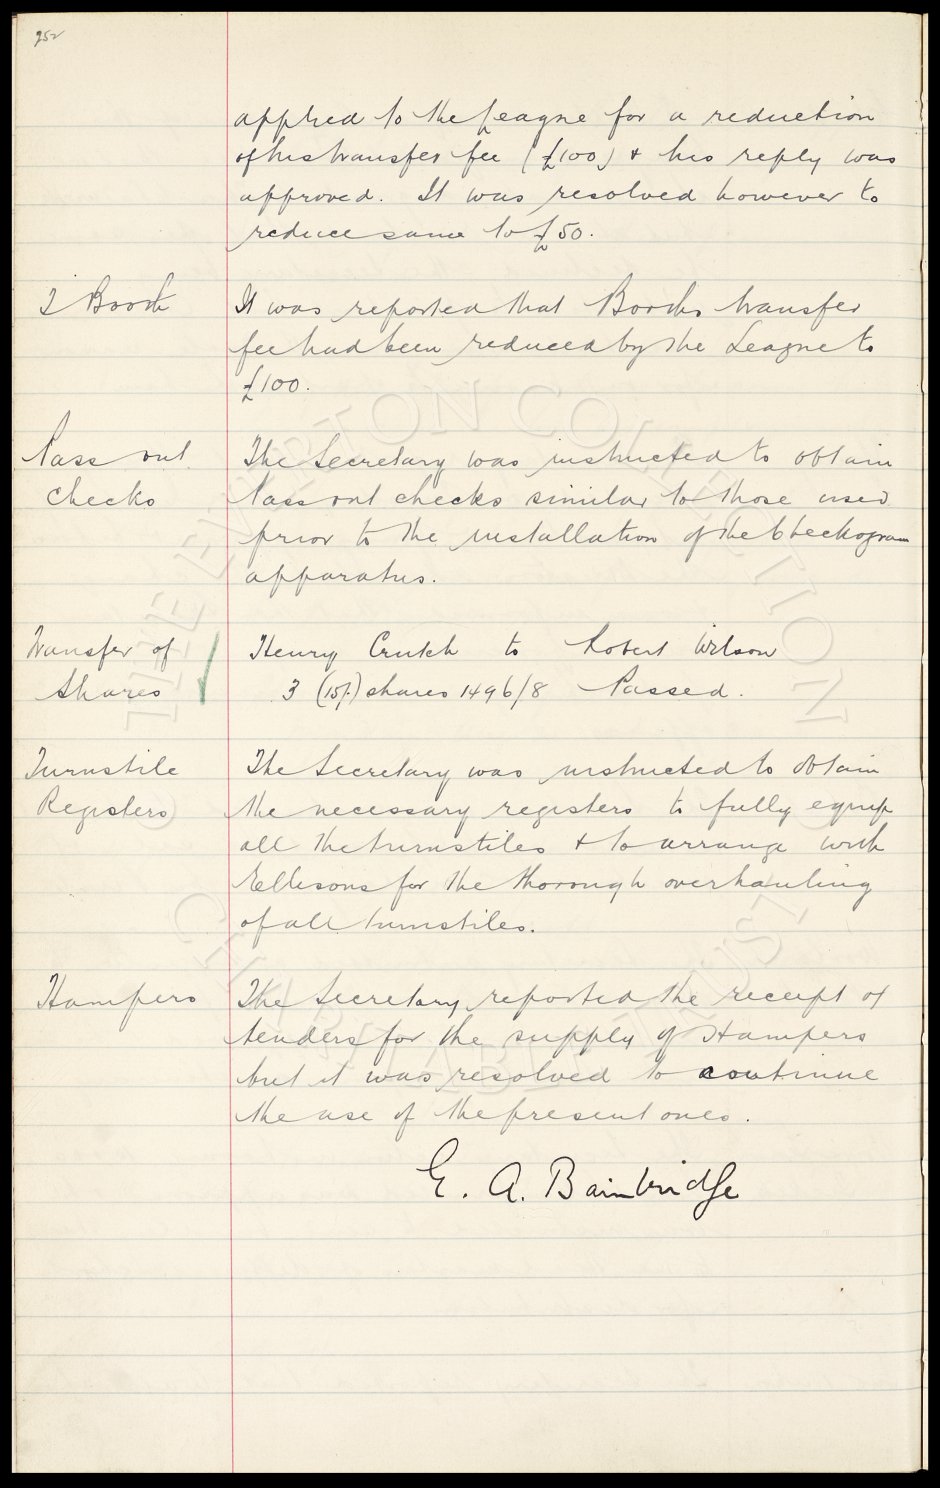 252
applied to the League for a reduction
of his transfer fee (£100) & his reply was
approved. It was resolved however to
reduce same to £50.
T Booth
It was reported that Booths transfer
fee had been reduced by the League to
£100.
Pass out
Checks
The Secretary was instructed to obtain
Pass out checks similar to those used
prior to the installation of the Checkogram
apparatus.
Transfer of
Shares
Henry Crutch to Robert Wilson
3 (15/-) shares 1496/8 Passed.
Turnstile
Registers
The Secretary was instructed to obtain
the necessary registers to fully equip
all the turnstiles & to arrange with
Ellisons for the thorough overhauling
of all turnstiles.
Hampers
The Secretary reported the receipt of
tenders for the supply of Hampers
but it was resolved to continue
the use of the present ones.
E. A. Bainbridge
© THE EVERTON COLLECTION
CHARITABLE TRUST